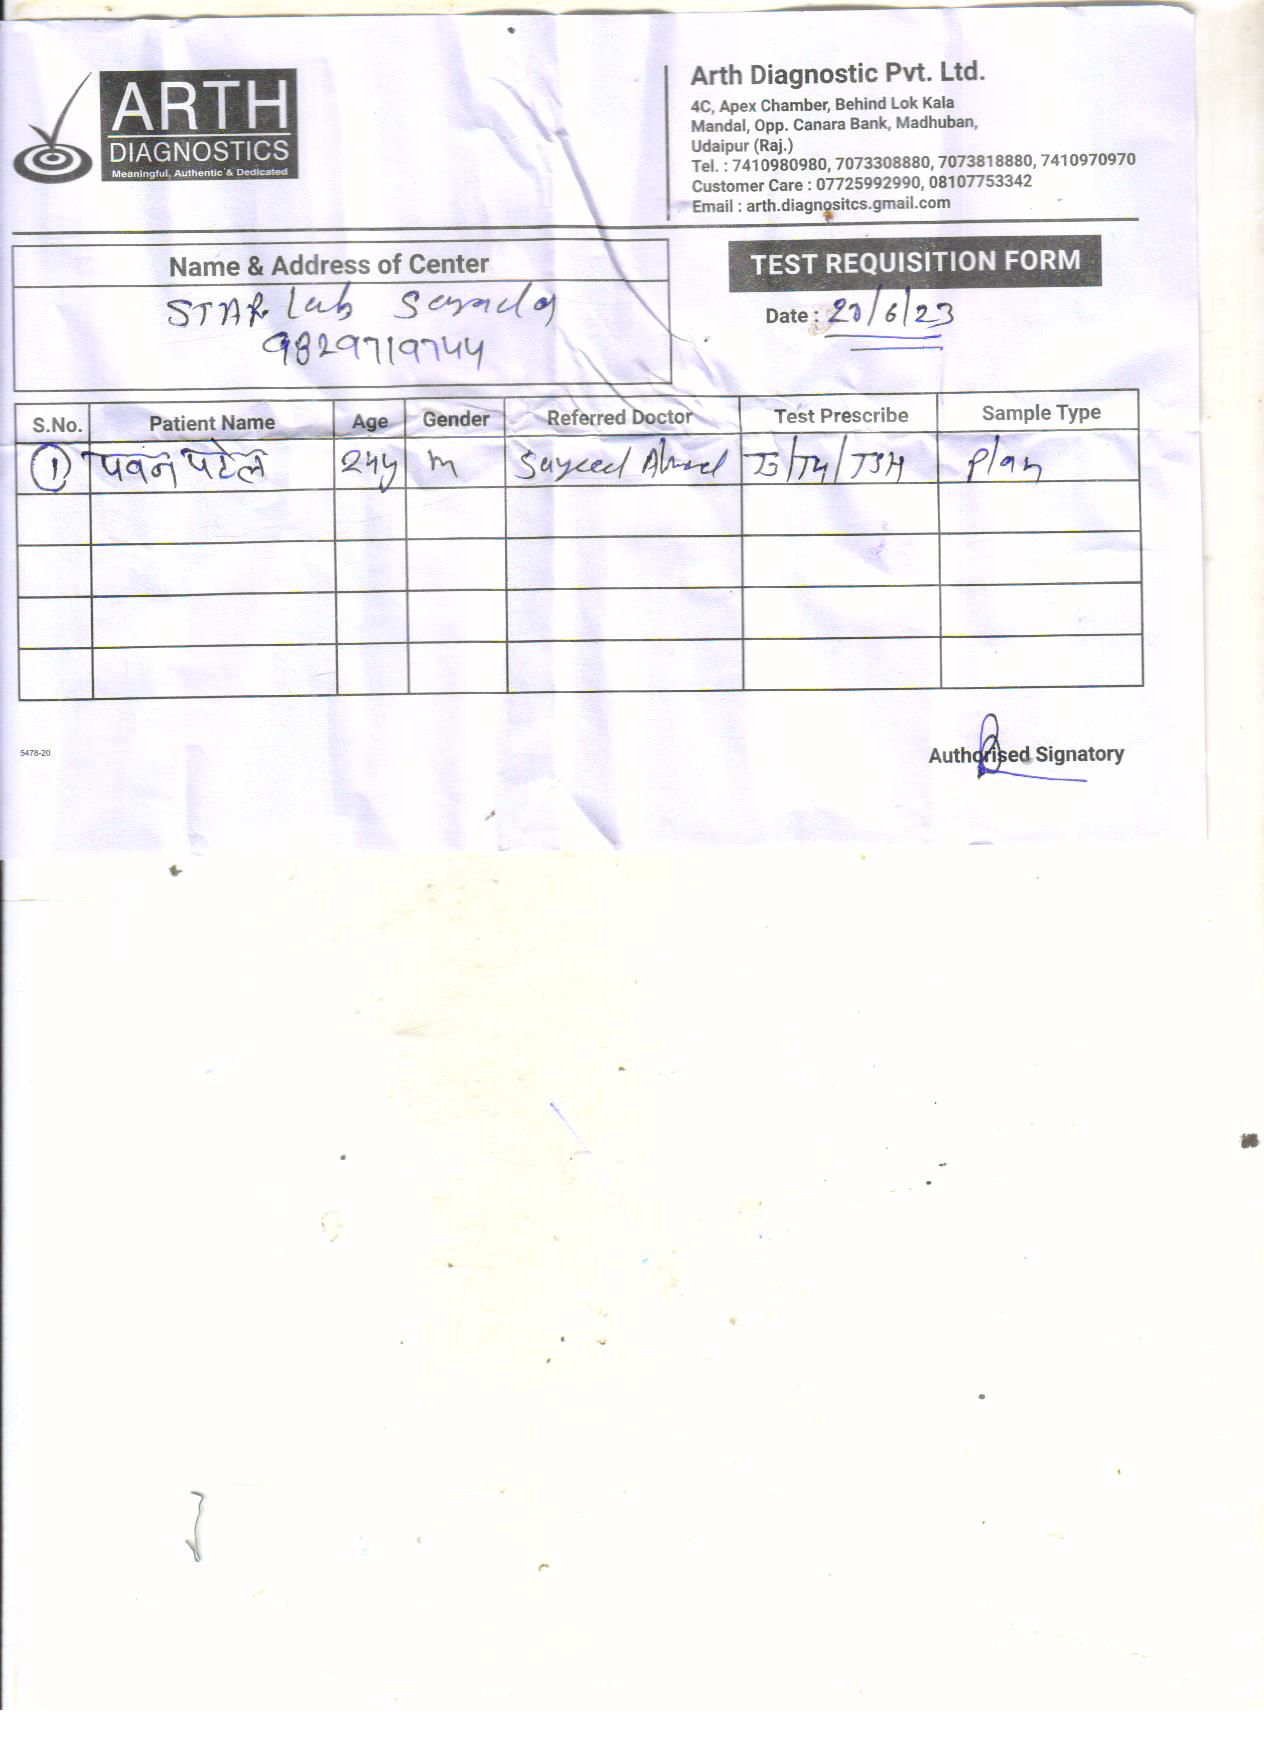 ARTH
DIAGNOSTICS
Meaningful, Authentic & Dedicated
Arth Diagnostic Pvt. Ltd.
4C, Apex Chamber, Behind Lok Kala
Mandal, Opp. Canara Bank, Madhuban,
Udaipur (Raj.)
Tel. : 7410980980, 7073308880, 7073818880, 7410970970
Customer Care : 07725992990, 08107753342
Email : arth.diagnositcs.gmail.com
Name & Address of Center
STAR Lab
9829719744
TEST REQUISITION FORM
Date : 20/6/23
S.No. Patient Name Age Gender Referred Doctor Test Prescribe Sample Type
1 पवन पटेल 24y m T3/T4/TSH plan
5478-20
Authorised Signatory